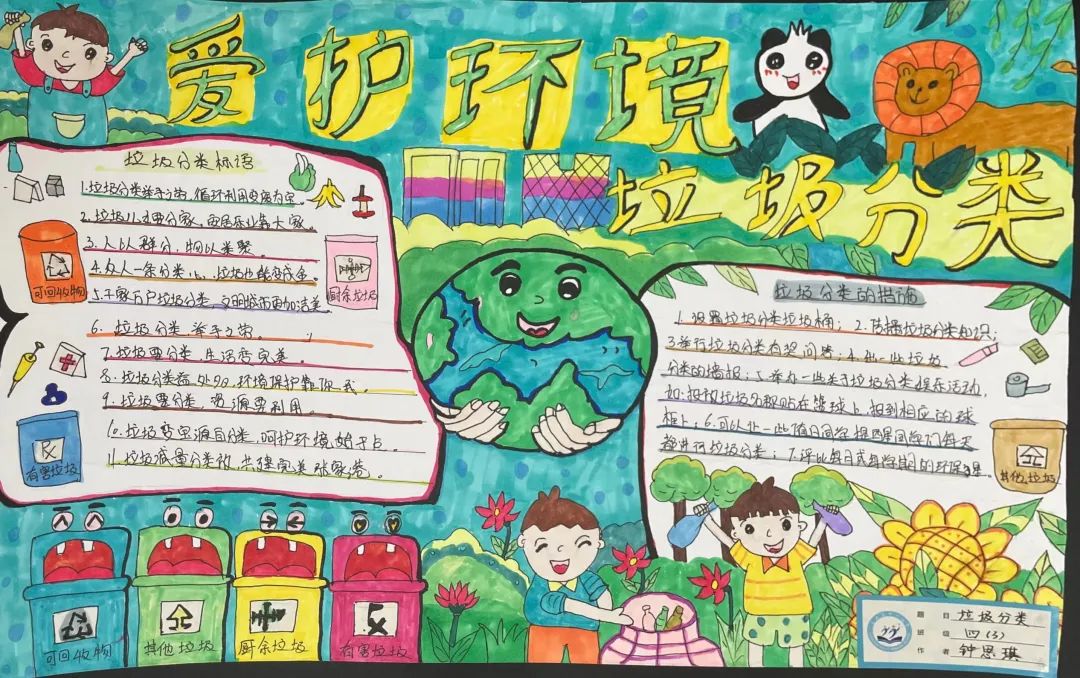 爱护环境
垃圾分类
垃圾分类标语
1.垃圾分类举手之劳,循环利用变废为宝。
2.垃圾儿要分家,安居乐业靠大家。
3.人以群分,物以类聚。
4.众人一条分类心,垃圾也能变成金。
5.千家万户垃圾分类,文明城市更加洁美
6.垃圾分类 举手之劳。
7.垃圾要分类 生活香完美。
8.垃圾分类益处多,环境保护靠你我。
9.垃圾要分类,资源要利用。
10.垃圾变宝源自分类,呵护环境始于
11.垃圾减量分类放,共建完美张家港。
可回收物
厨余垃圾
有害垃圾
垃圾分类的措施
1.设置垃圾分类垃圾桶;2.传播垃圾分类知识;
3.举行垃圾分类有奖问答;4.出一些垃圾
分类的墙报;5.举办一些关于垃圾分类娱乐活动,
如:把垃圾名称贴在篮球上,投到相应的球
框上;6.可以让一些值日同学,提醒同学们每天
都进行垃圾分类;7.评比每日或每学期的环保
其他垃圾
可回收物
其他垃圾
厨余垃圾
有害垃圾
题目 垃圾分类
班级 四(3)
作者 钟思琪